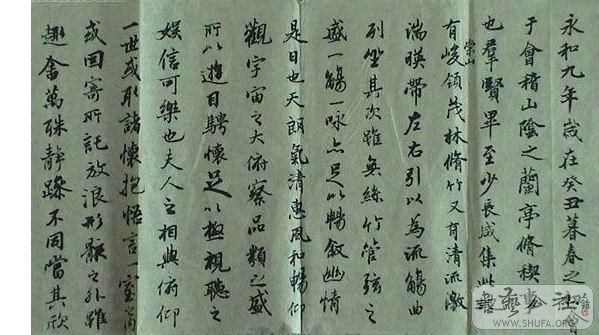 永和九年歲在癸丑暮春之初
于會稽山陰之蘭亭脩禊事
也羣賢畢至少長咸集此
崇山
有峻領茂林脩竹又有清流激
湍暎帶左右引以為流觴曲
列坐其次雖無絲竹管弦之
盛一觴一詠亦足以暢敘幽情
是日也天朗氣清惠風和暢仰
觀宇宙之大俯察品類之盛
所以遊目騁懷足以極視聽之
娛信可樂也夫人之相與俯仰
一世或取諸懷抱悟言一室之內
或因寄所託放浪形骸之外雖
趣舍萬殊靜躁不同當其欣
WWW.SHUFA.ORG